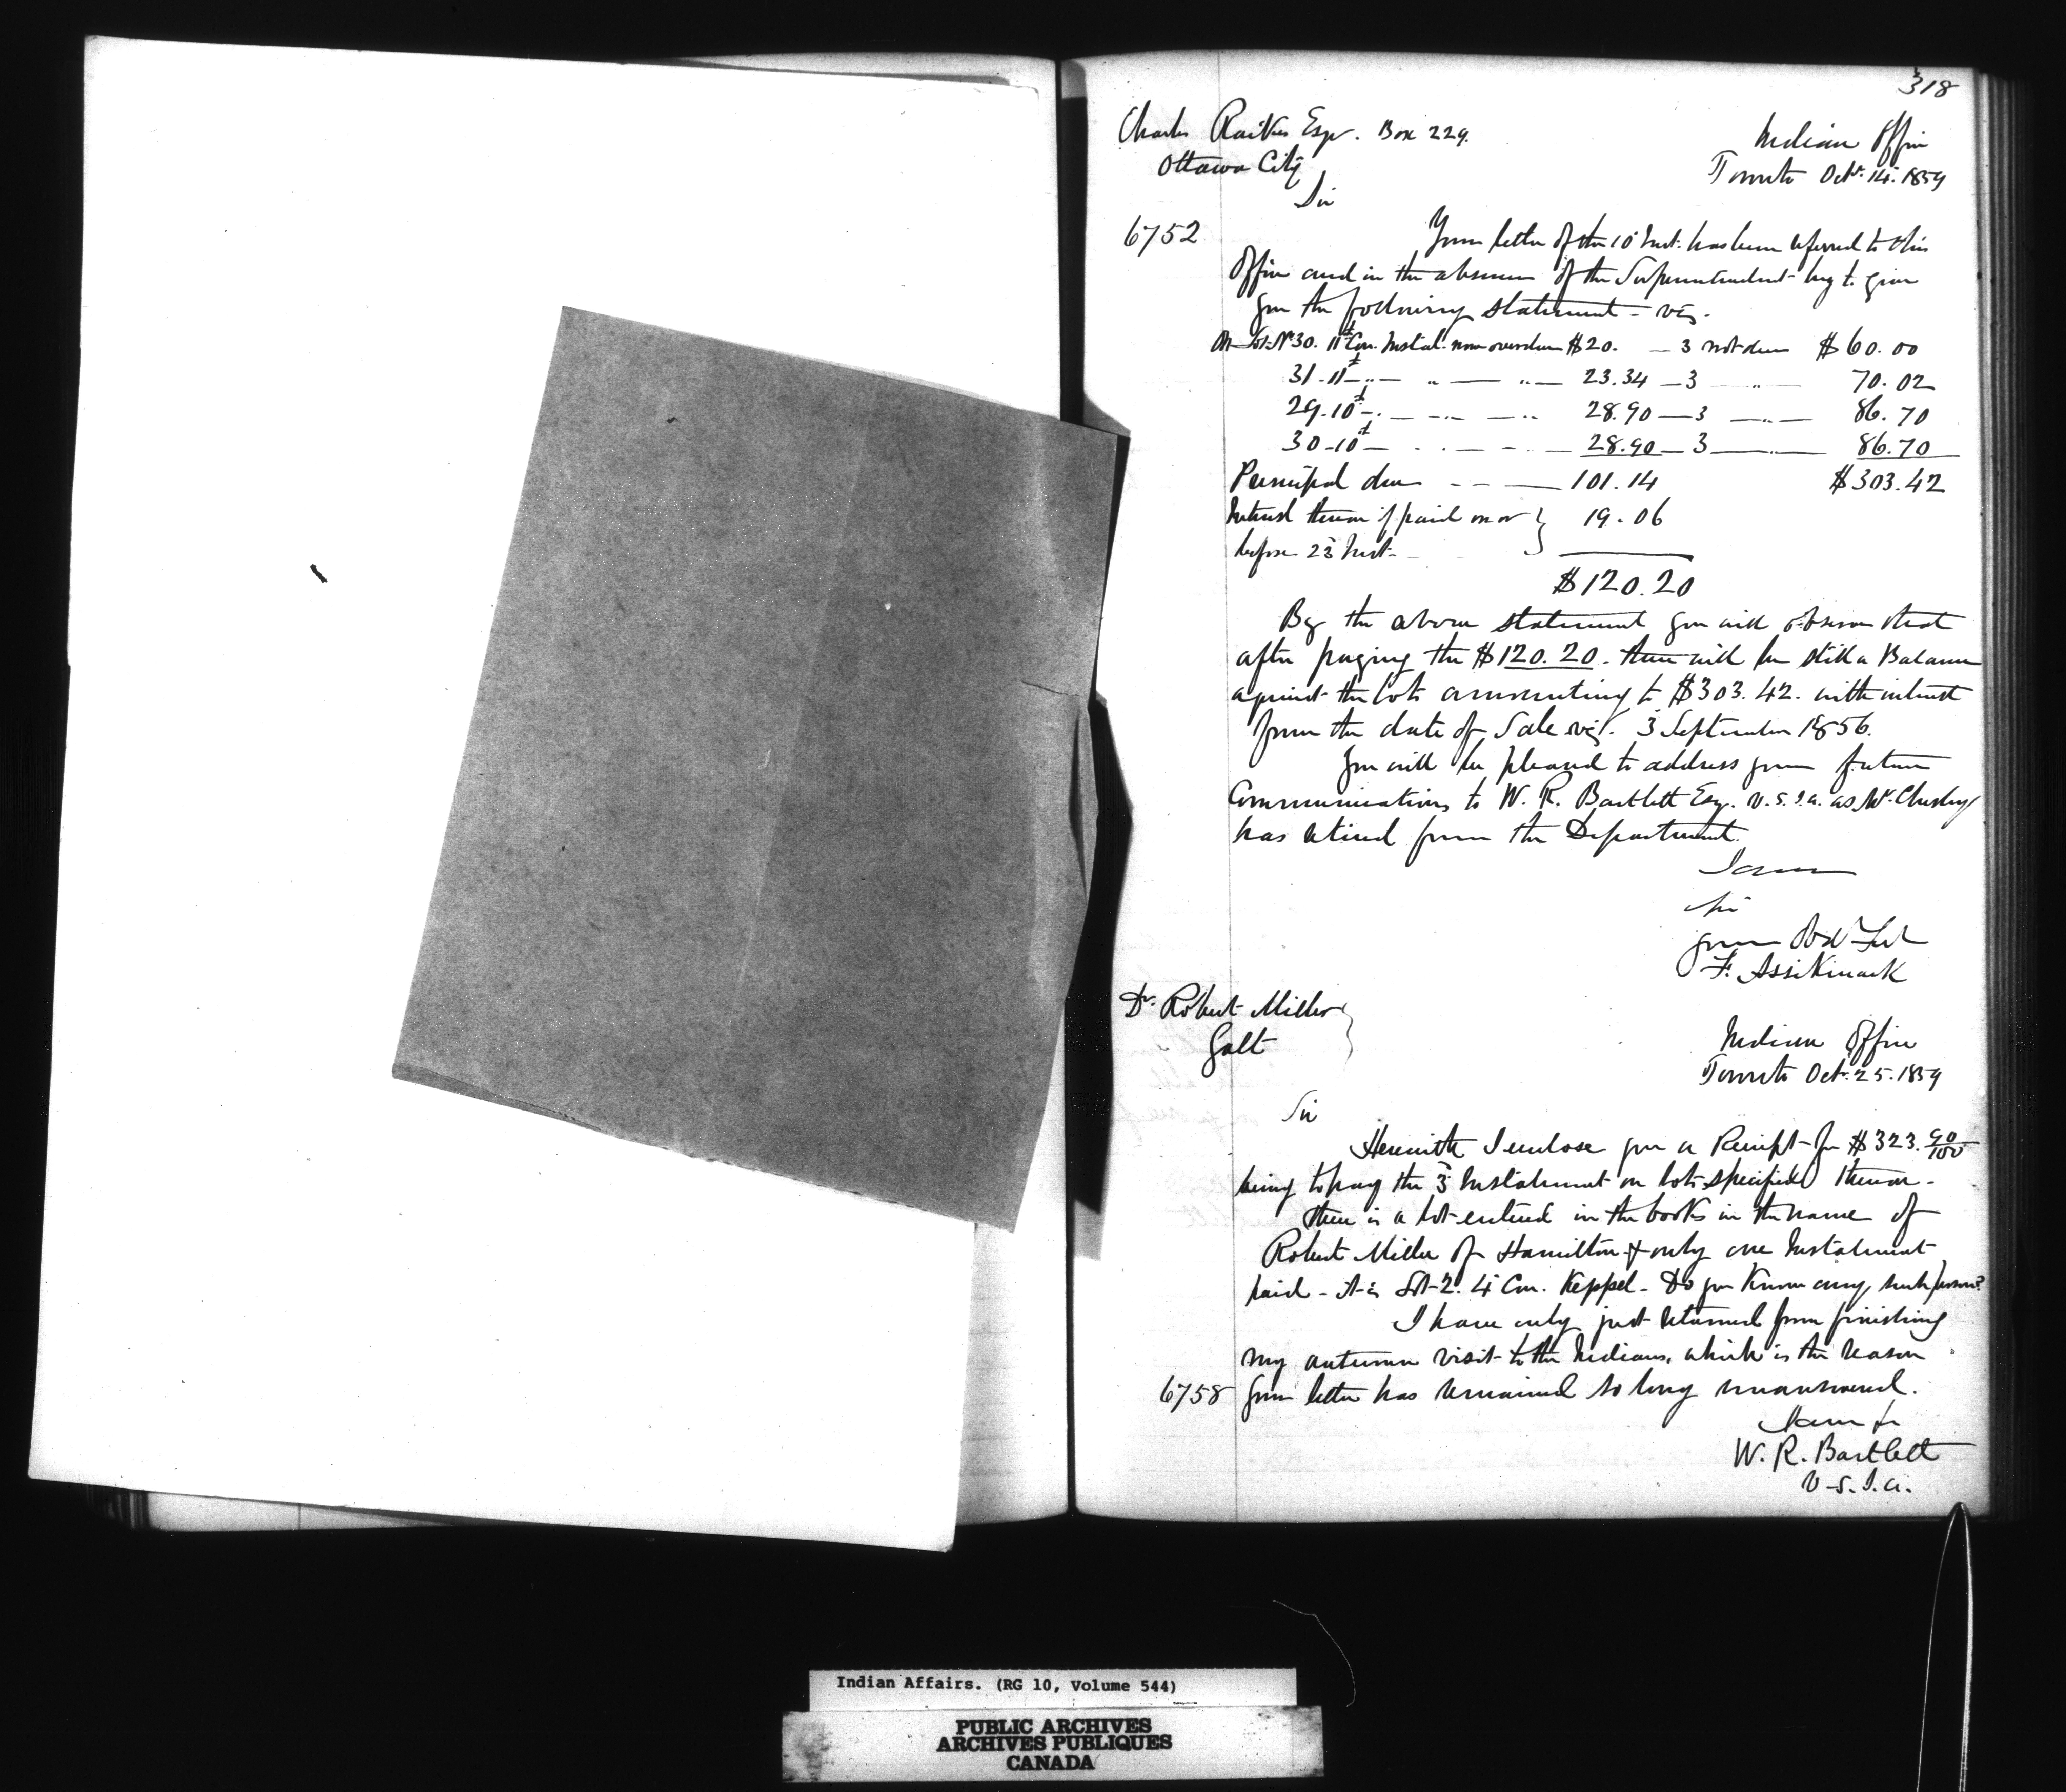 318
Charles Raikes Esqr. Box 229.
Ottawa City
Indian Office
Toronto Octr. 14. 1859
Sir
6752
Your letter of the 10 Inst. has been referred to this
Office and in the absence of the Superintendent beg to give
you the following statement - viz.
On Lot No 30. 11th Con. Instal. now overdue $20. — 3 not due $60.00
31 - 11th — " — " — " — 23.34 — 3 — " — 70.02
29 - 10th — " — " — " 28.90 — 3 — " — 86.70
30 - 10th — " — " — 28.90 — 3 — " — 86.70
Principal due - - — 101.14 $303.42
Interest thereon if paid on or } 19.06
before 23 Inst -
$120.20
By the above statement you will observe that
after paying the $120.20. there will be still a Balance
against the lots amounting to $303.42. with interest
from the date of Sale viz. 3 September 1856.
You will be pleased to address your future
Communications to W. R. Bartlett Esq. V.S.I.A. as Mr. Chesley
has retired from the Department.
I am
Sir
your Obdt Sert
F. Assikinack
Dr. Robert Miller
Galt
Indian Office
Toronto Oct. 25. 1859
Sir
Herewith I enclose you a Receipt for $323. 90/100
being to pay the 3 Instalment on lots specified thereon -
There is a lot entered in the books in the name of
Robert Miller of Hamilton & only one Instalment
paid - it is Lot 2. 4 Con. Keppel - Do you know any such person?
I have only just returned from finishing
my autumn visit to the Indians, which is the reason
6758 your letter has remained so long unanswered.
I am &c
W. R. Bartlett
V.S.I.A.
Indian Affairs. (RG 10, Volume 544)
PUBLIC ARCHIVES
ARCHIVES PUBLIQUES
CANADA